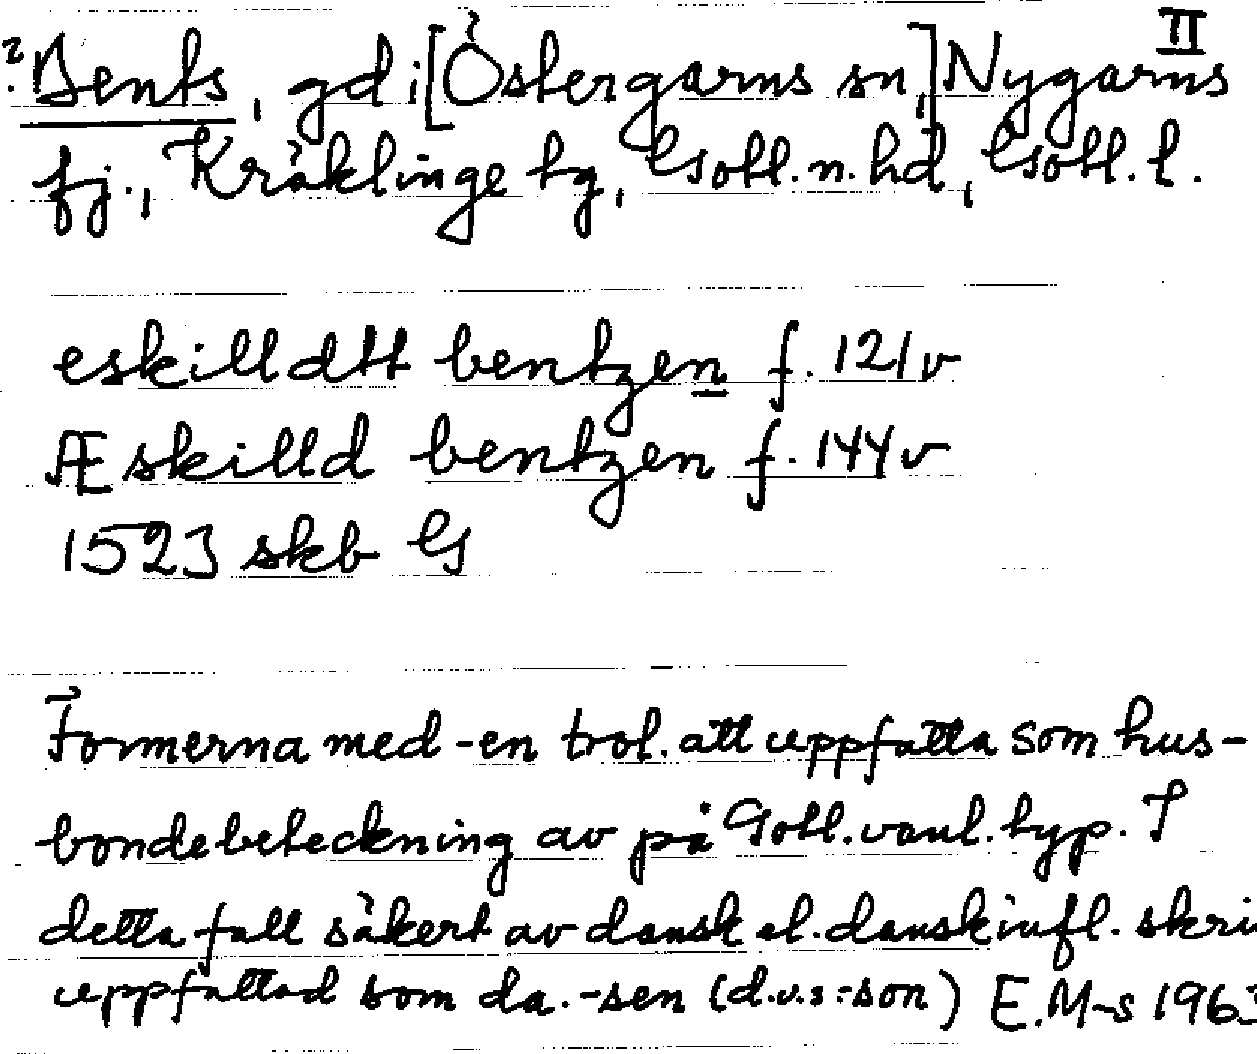 II
? Bents, gd i [Östergarns sn,] Nygarns
fj., Kräklinge tg, Gotl. n. hd, Gotl. l.
eskilldtt bentzen f. 121v
Æskilld bentzen f. 144v
1523 skb G
Formerna med -en trol. att uppfatta som hus-
bondebeteckning av på Gotl. vanl. typ. I
detta fall säkert av dansk el. danskinfl. skri
uppfattad som da. -sen (d.v.s. -son) E.M-s 1963